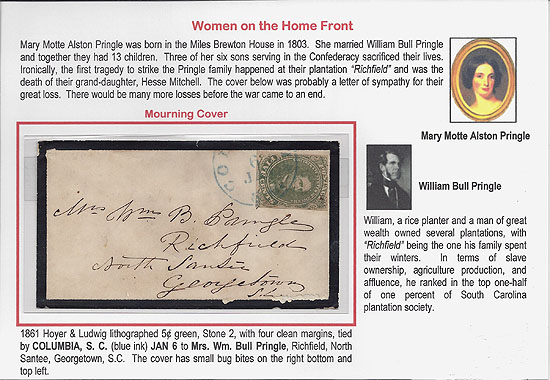 Women on the Home Front
Mary Motte Alston Pringle was born in the Miles Brewton House in 1803. She married William Bull Pringle
and together they had 13 children. Three of her six sons serving in the Confederacy sacrificed their lives.
Ironically, the first tragedy to strike the Pringle family happened at their plantation "Richfield" and was the
death of their grand-daughter, Hesse Mitchell. The cover below was probably a letter of sympathy for their
great loss. There would be many more losses before the war came to an end.
Mary Motte Alston Pringle
Mourning Cover
Mrs Wm B. Pringle
Richfield
North Santee
Georgetown
William Bull Pringle
William, a rice planter and a man of great
wealth owned several plantations, with
"Richfield" being the one his family spent
their winters. In terms of slave
ownership, agriculture production, and
affluence, he ranked in the top one-half
of one percent of South Carolina
plantation society.
1861 Hoyer & Ludwig lithographed 5¢ green, Stone 2, with four clean margins, tied
by COLUMBIA, S. C. (blue ink) JAN 6 to Mrs. Wm. Bull Pringle, Richfield, North
Santee, Georgetown, S.C. The cover has small bug bites on the right bottom and
top left.